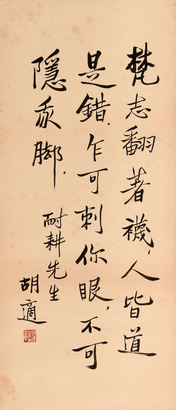 梵志翻著襪，人皆道
是錯，乍可刺你眼，不可
隱我脚．
耐耕先生
胡適